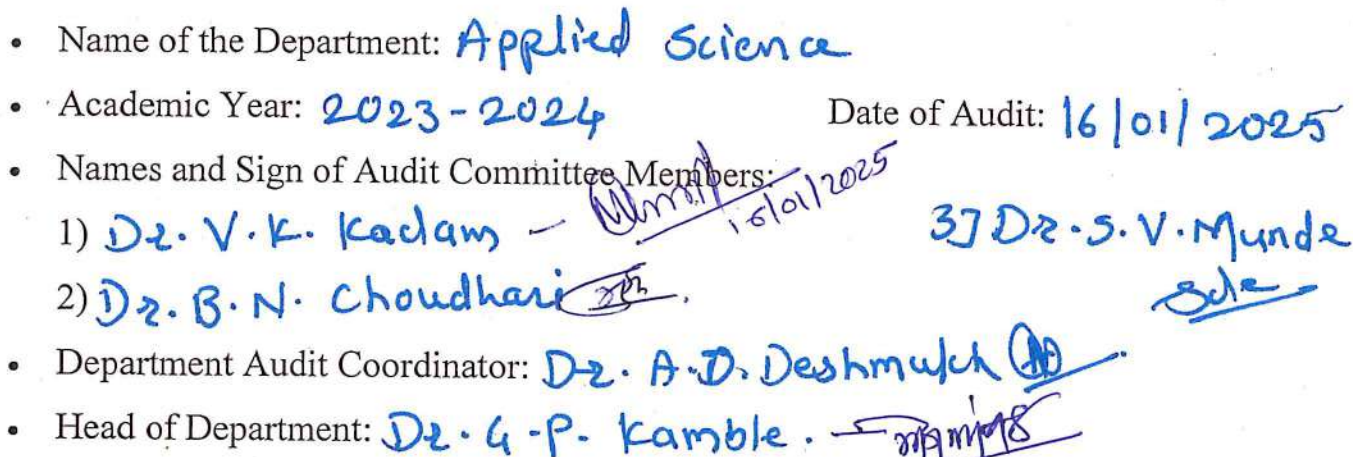 • Name of the Department: Applied Science
• Academic Year: 2023-2024 Date of Audit: 16/01/2025
• Names and Sign of Audit Committee Members:
1) Dr. V. K. Kadam - 16/01/2025 3] Dr. S. V. Munde
2) Dr. B. N. Choudhari
• Department Audit Coordinator: Dr. A. D. Deshmukh
• Head of Department: Dr. G. P. Kamble.